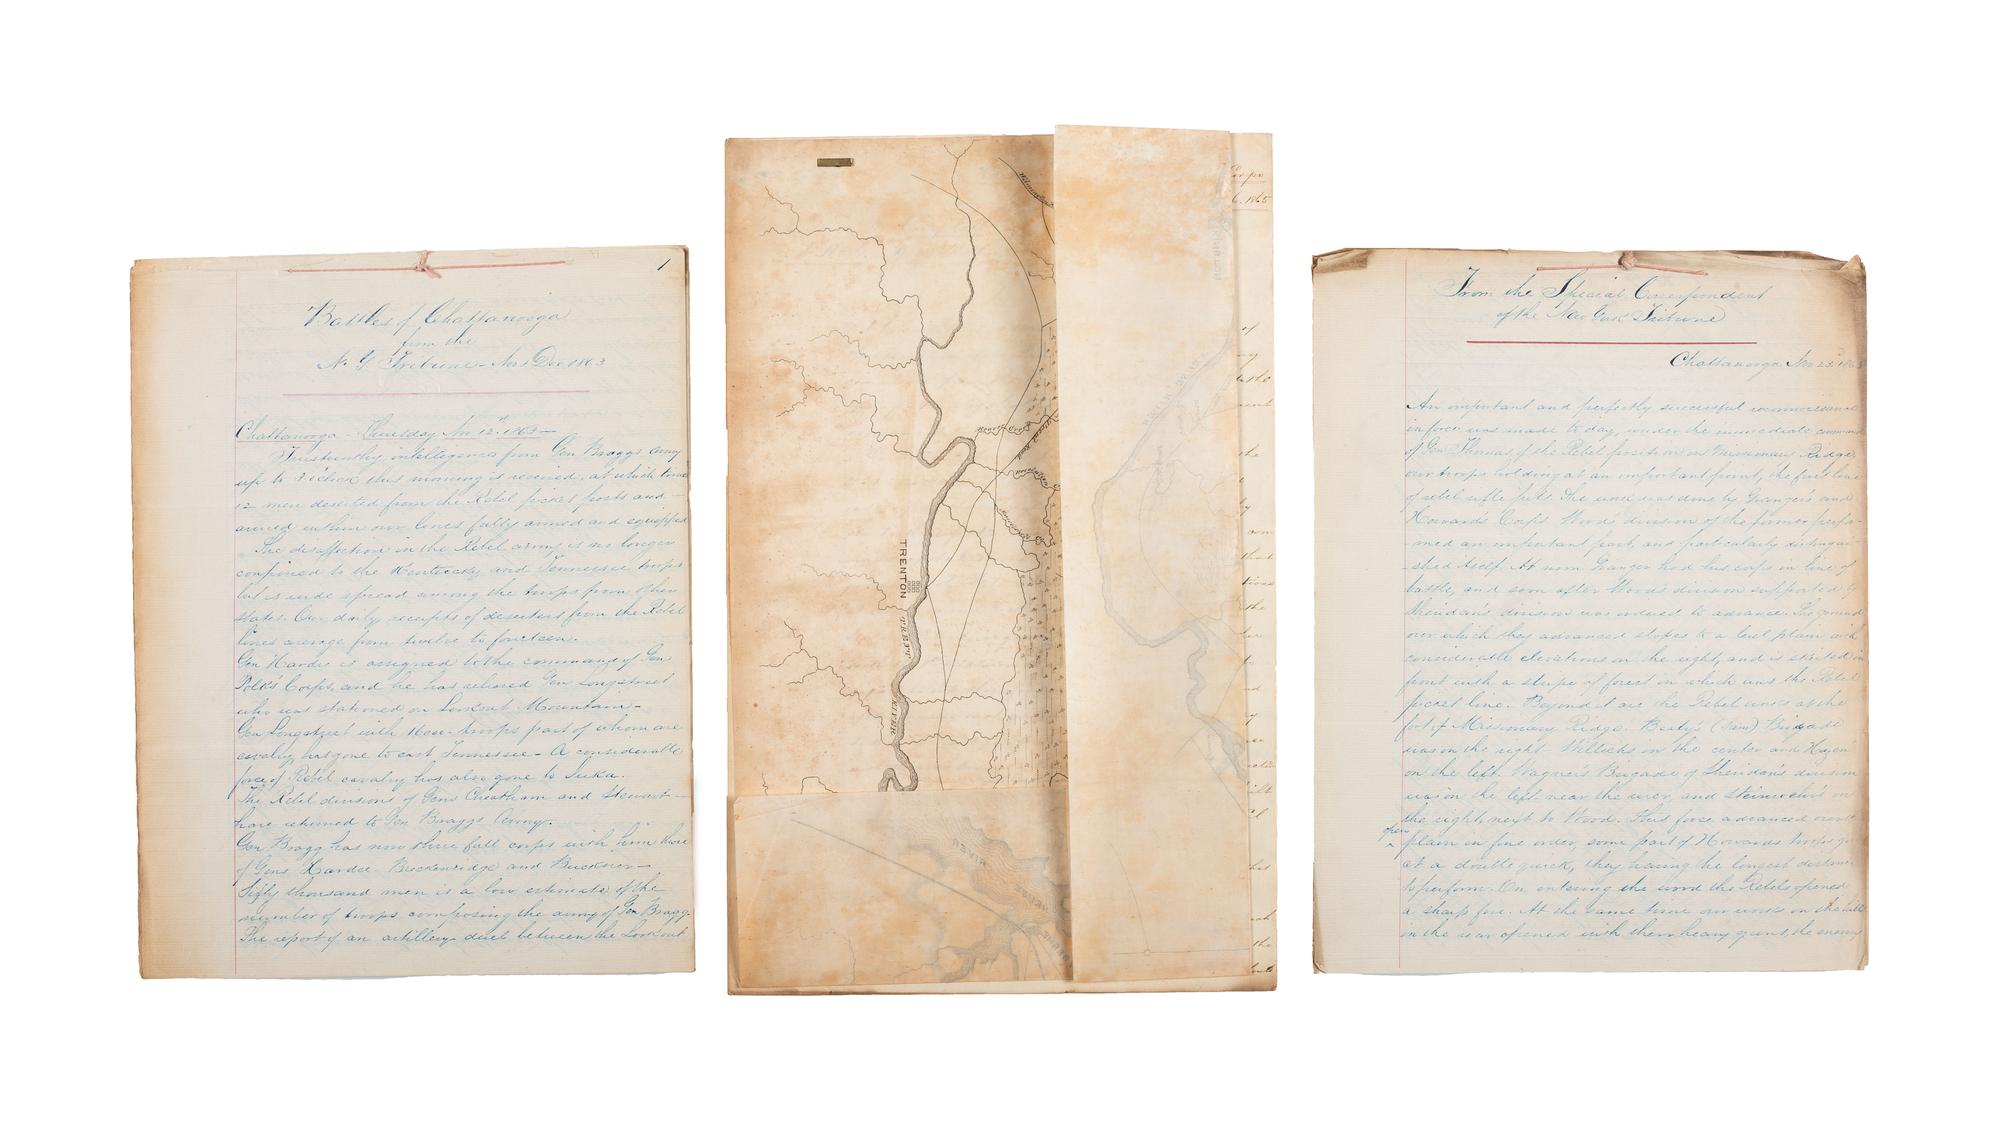 1
Battles of Chattanooga
from the
N. Y. Tribune - Nov & Dec 1863
Chattanooga - Thursday Nov 12th 1863 -
Trustworthy intelligence from Gen Braggs army
up to 3 o'clock this morning is received, at which time
12 men deserted from the Rebel picket posts and -
arrived within our lines fully armed and equipped
The disaffection in the Rebel army is no longer
confined to the Kentucky and Tennessee troops
but is wide spread among the troops from other
states. Our daily receipts of deserters from the Rebel
lines average from twelve to fourteen.
Gen Hardee is assigned to the command of Gen
Polk's Corps, and he has relieved Gen Longstreet
who was stationed on Lookout Mountain -
Gen Longstreet with 1600 troops part of whom are
cavalry, has gone to east Tennessee - A considerable
force of Rebel cavalry has also gone to Iuka.
The Rebel divisions of Gens Cheatham and Stewart -
have returned to Gen Braggs Army.
Gen Bragg has now three full corps with him those
of Gens Hardee Breckenridge and Buckner -
Fifty thousand men is a low estimate of the
number of troops composing the army of Gen Bragg.
The report of an artillery duel between the Lookout
TRENTON
TRENT
RIVER
RIVER
NEUSE
Corps
1865
of
the
the
com
the
has
the
From the Special Correspondent
of the New York Tribune
Chattanooga Nov 23d 1863
An important and perfectly successful reconnoissance
in force was made to day, under the immediate command
of Gen Thomas, of the Rebel position on Missionary Ridge
our troops holding at an important point, the first line
of rebel rifle pits. The work was done by Granger's and
Howard's Corps. Wood's division of the former perfor-
-med an important part, and particularly distingui-
-shed itself. At noon Granger had his corps in line of
battle, and soon after Wood's division supported by
Sheridan's division was ordered to advance. The ground
over which they advanced slopes to a level plain with
considerable elevations on the right, and is skirted in
front with a stripe of forest in which was the Rebel
picket line. Beyond it are the Rebel works at the
foot of Missionary Ridge. Beaty's (Sam) Brigade
was on the right Willich's in the center and Hazen
on the left. Wagner's Brigade of Sheridan's division
was on the left near the river, and Steinwehr's on
the right, next to Wood. This force advanced over the
open
plain in fine order, some part of Howards troops
at a double quick, they having the longest distance
to perform. On entering the wood the Rebels opened
a sharp fire. At the same time our works on the hill
in the rear opened with their heavy guns, the enemy